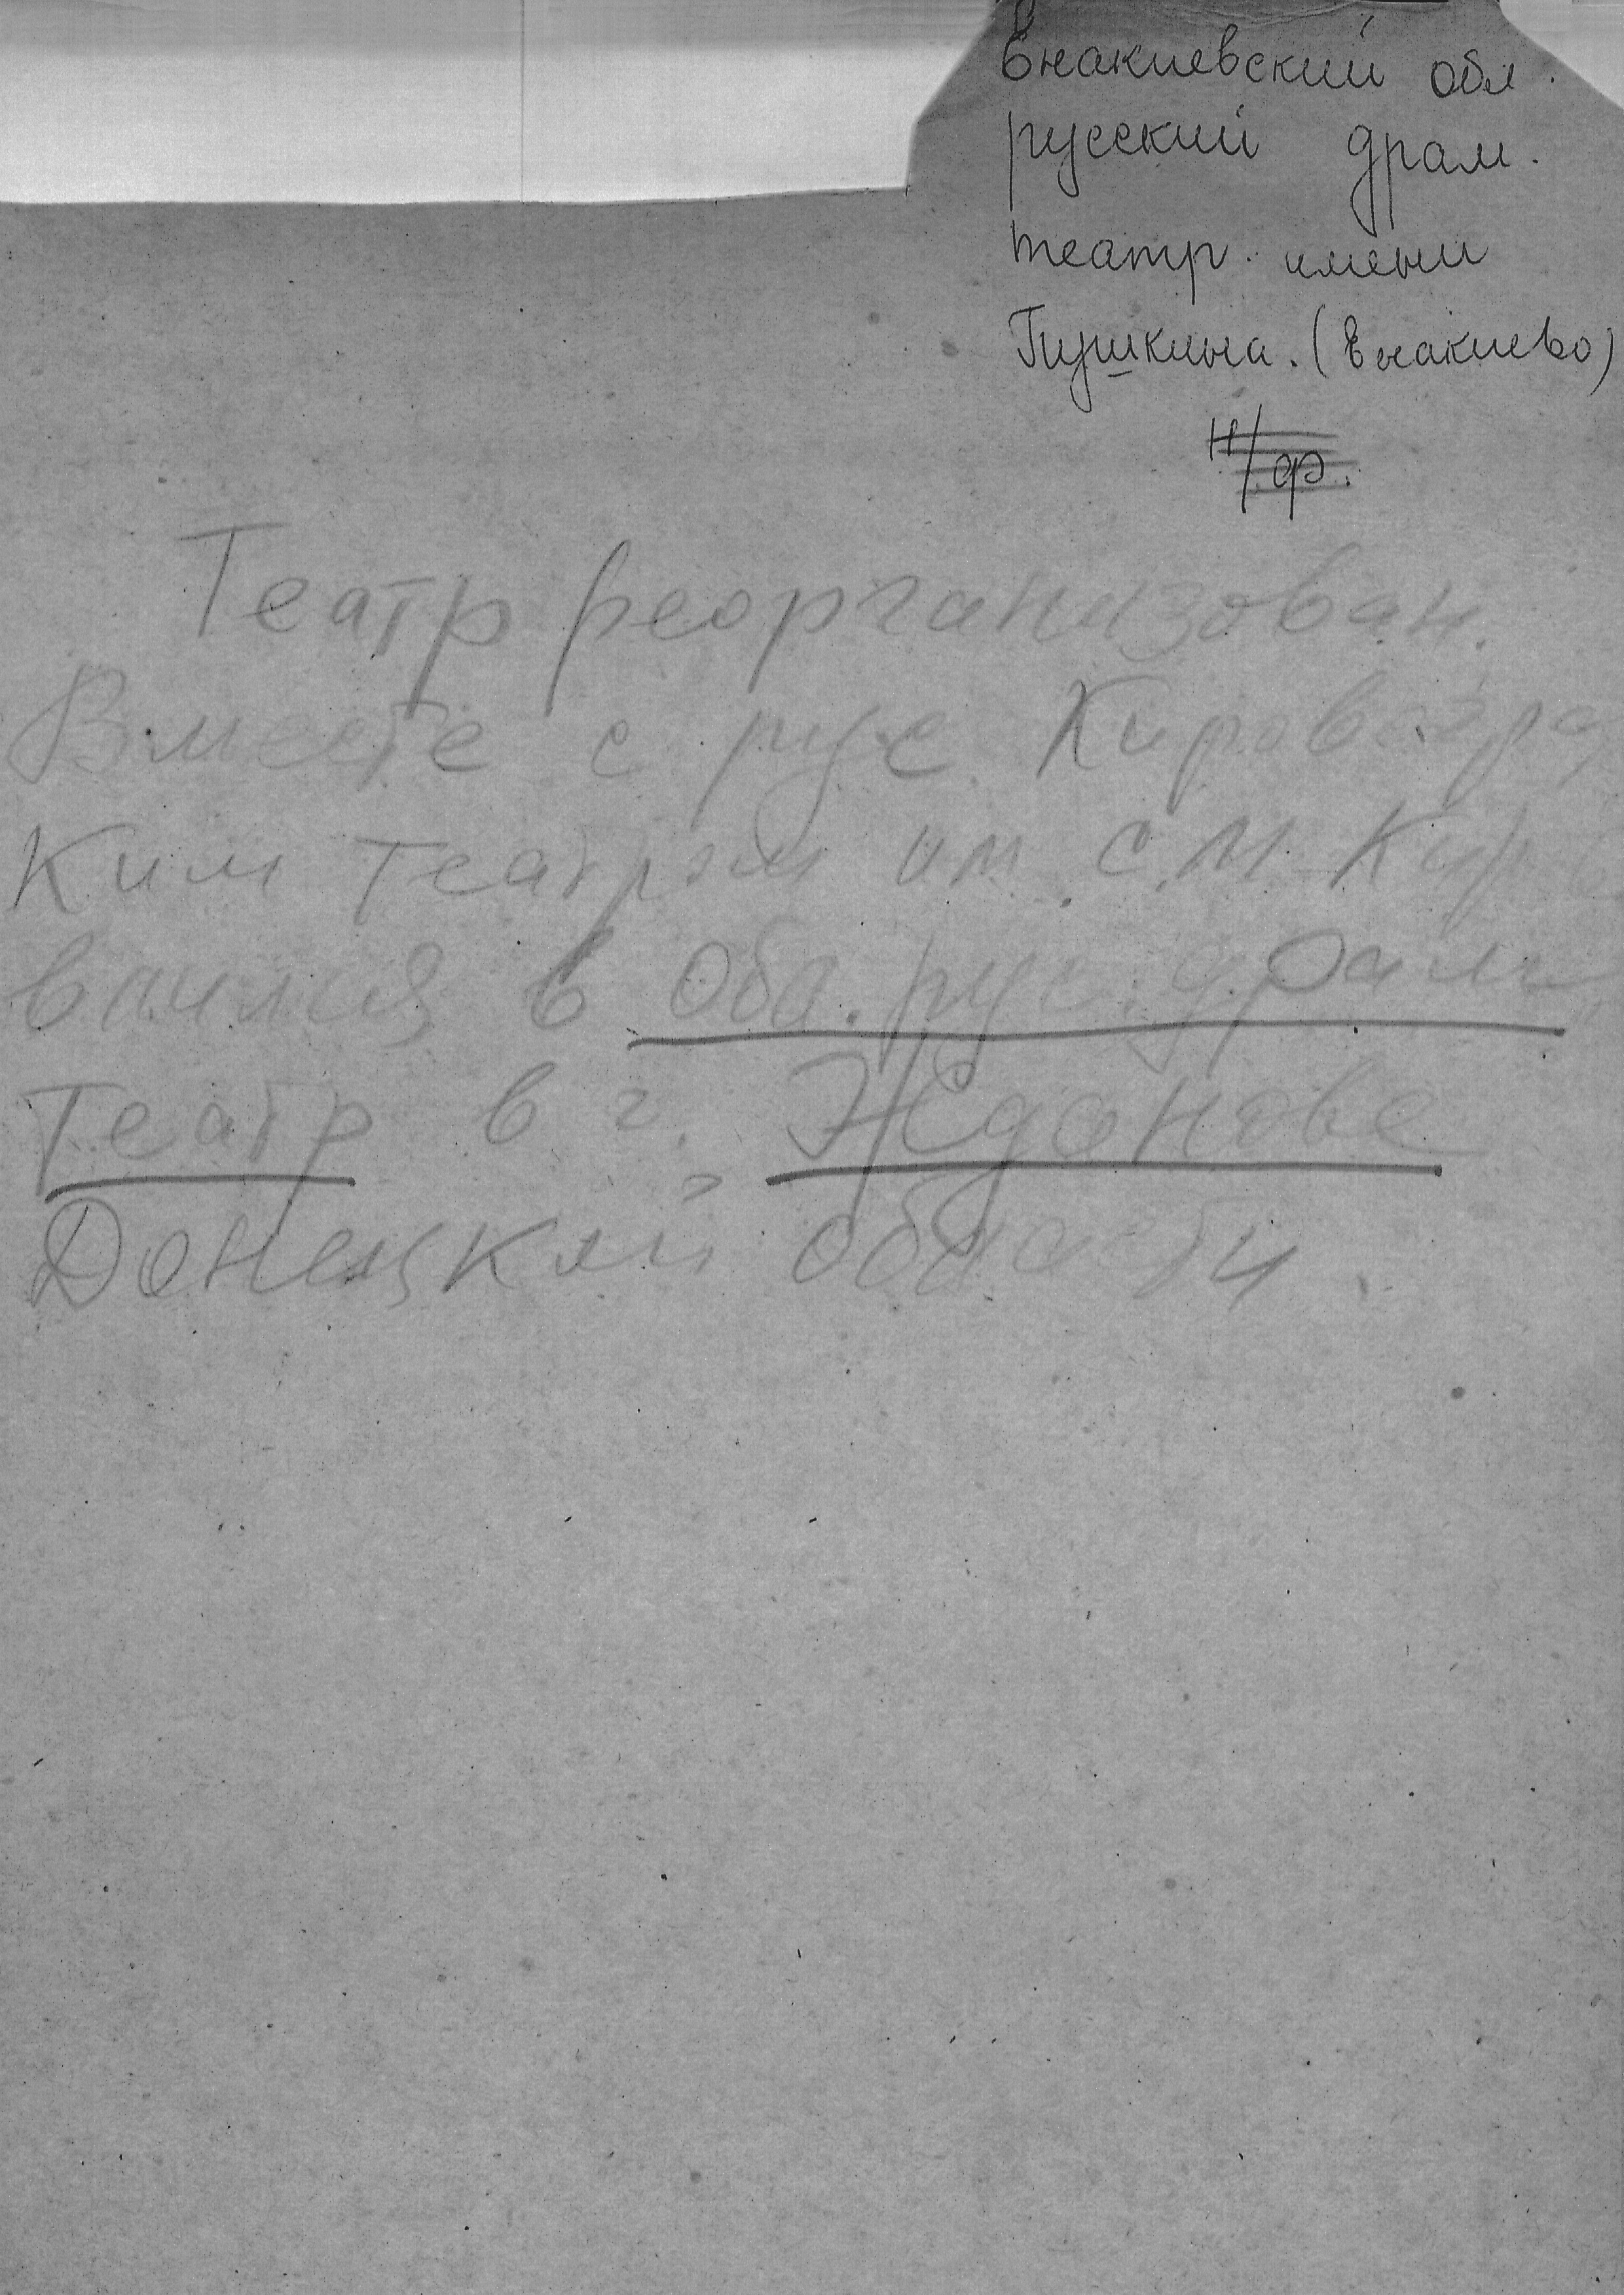 Енакиевский обл.
русский драм.
театр. имени
Пушкина. (Енакиево)
н/ф.
Театр реорганизован.
Вместе с рус. Кировогра
ким театром им. С.М. Кир
влился в Обл. рус. драм.
театр в г. Жданове
Донецкой области.